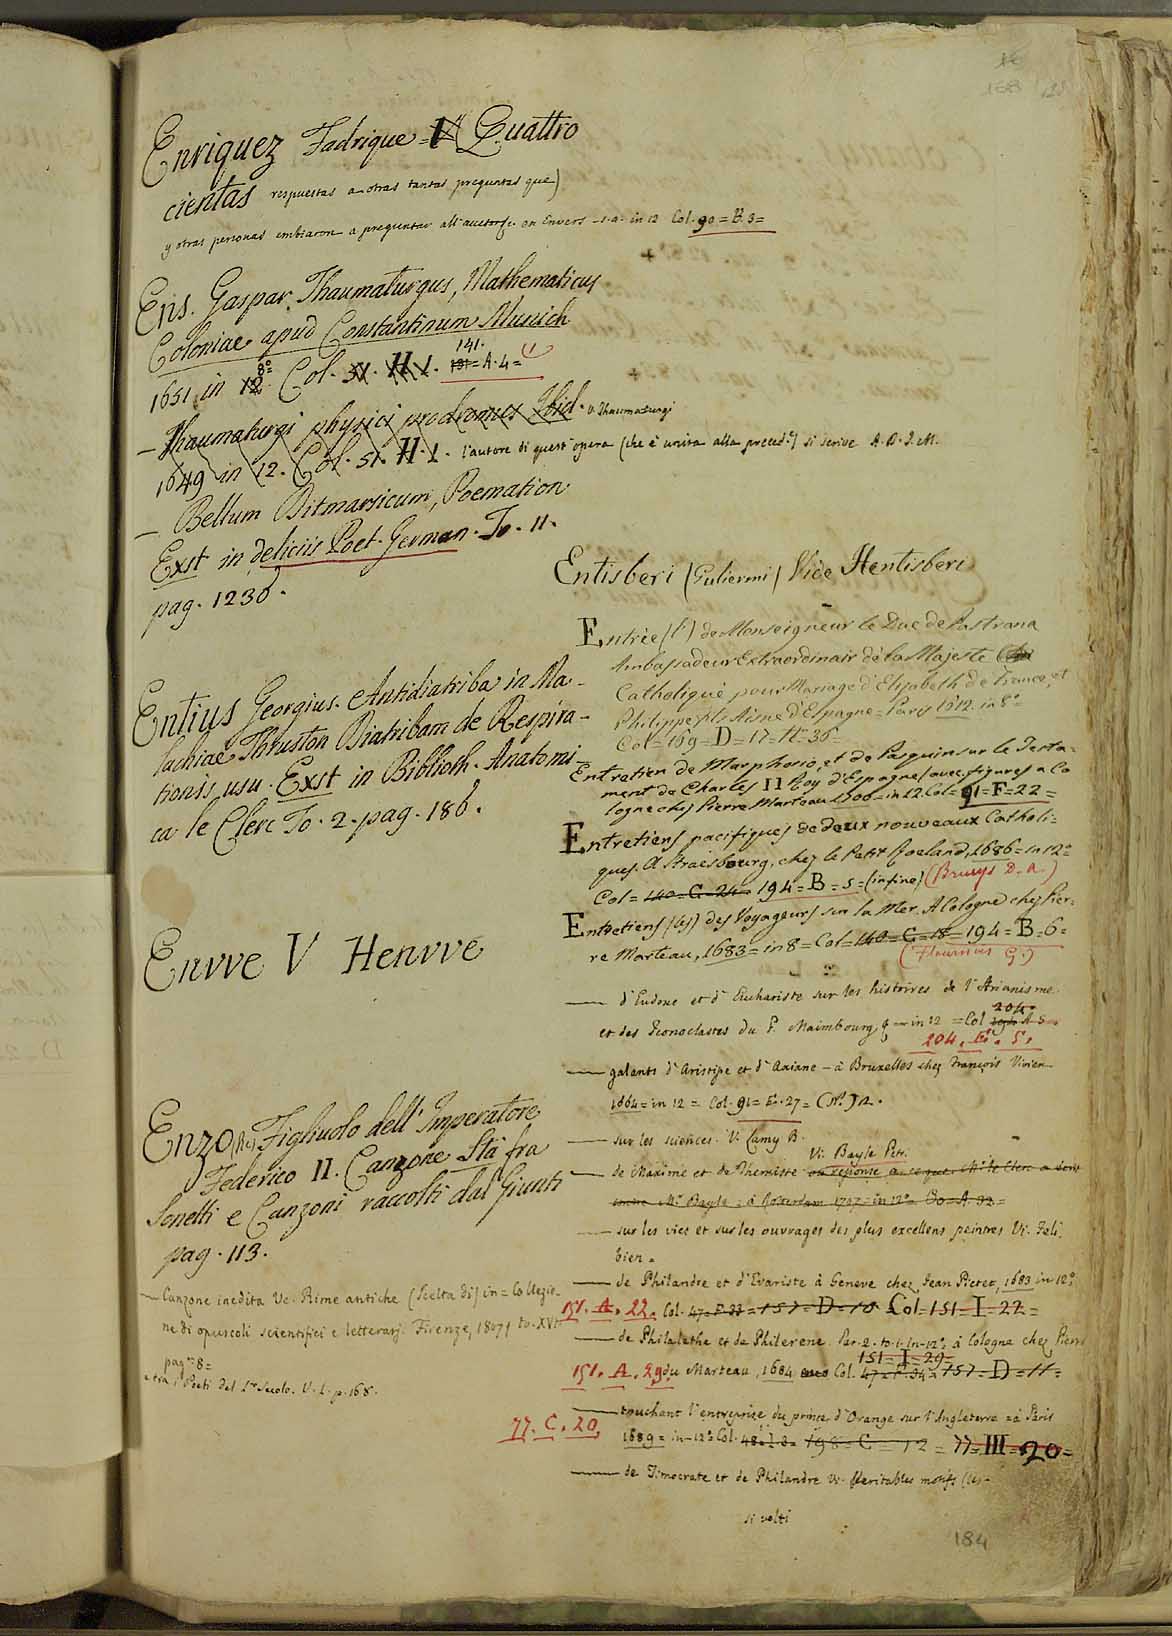 Enriquez Fadrique = Quattro
cientas respuestas a otras tantas preguntas que
y otras personas embiaron a preguntar all'auctor &c. en Envers - s.a. in 12 Col. 90 = B. 3 =
Ens. Gaspar Thaumaturgus, Mathematicus
Coloniae apud Constantinum Munich
1651 in 8º Col. 51. H. 1. 141. 131 = A. 4 = (1
- Thaumaturgi physici prodromus Ibid. v. Thaumaturgi
1649 in 12. Col. 51. H. 1. l'autore di quest'opera (che è unita alla preced.e) si scrive A. D. J. M.
- Bellum Ditmarsicum, Poemation
Exst in deliciis Poet. German. To. II.
pag. 1236.
Entius Georgius. Antidiatriba in Ma-
lachiae Thruston Diatribam de Respira-
tionis usu. Exst in Biblioth. Anatomi-
ca le Clerc To. 2. pag. 186.
Envve V Henvve
Enzo (Re) Figliuolo dell'Imperatore
Federico II. Canzone Stà fra
Sonetti e Canzoni raccolti dal Giunti
pag. 113.
- Canzone inedita Ve. Rime antiche (Scelta di) in = Collezio-
ne di opuscoli scientifici e letterarj. Firenze, 1807 to. XVI
pag. 8 =
e tra i Poeti del 1mo Secolo. V. 1. p. 168.
Entisberi (Guliermi) Vide Hentisberi
Entrée (l') de Monseigneur le Duc de Pastrana
Ambassadeur Extraordinair de la Majeste
Catholique pour Mariage d'Elisabeth de France, et
Philippe fils Aisne d'Espagne = Paris 1612 in 8º
Col = 169 = D = 17 = 36
Entretien de Marphorio, et de Pasquin sur le Testa=
ment de Charles II Roy d'Espagne (avec figures a Co
logne chez Pierre Marteau 1700 = in 12. Col = 91 = F = 22 =
Entretiens pacifiques de deux nouveaux Catholi=
ques. A Strasbourg, chez le Petit Goeland, 1686 = in 12º
Col = 140 = C = 24 = 194 = B = 5 = (in fine) (Bruys D. A.)
Entretiens (les) des Voyageurs sur la Mer. A Cologne chez Pier=
re Marteau, 1683 = in 8 = Col = 140 = C = 18 = 194 = B = 6 =
(Flournois G.)
— d'Eudoxe et d'Euchariste sur les histoires de l'Arianisme
et des Iconoclastes du P. Maimbourg, = in 12 = Col 204. A 5
204. E. 5.
— galants d'Aristipe et d'Axiane - à Bruxelles chez François Vivien
1664 = in 12 = Col. 91 = E. 27 =
— sur les sciences. V. Lamy B.
— de Maxime et de Themiste Vi. Bayle Pier. ou reponse a ce que Mr. le Clerc a écrit
contre Mr. Bayle = à Roterdam 1707 = in 12º = A. 32 =
— sur les vies et sur les ouvrages des plus excellens peintres Vi. Feli
bien.
— de Philandre et d'Evariste à Geneve chez Jean Pictet, 1683 in 12º
151. A. 22. Col. 47 = F. 33 = 157 = D = 10 Col = 151 = I = 22 =
— de Philalethe et de Philerene. Par. 2. to. 1. in-12º à Cologne chez Pierre
151 = I = 29 =
151. A. 29. du Marteau, 1684 Col. 47 = F. 34 = 157 = D = 11 =
— touchant l'entreprise du prince d'Orange sur l'Angleterre = à Paris
77. C. 20. 1689 = in-12º Col. 48 = I. 3 = 198 = C = 12 = 77 = III = 20 =
— de Timocrate et de Philandre V. Veritables motifs (les
si volti
184